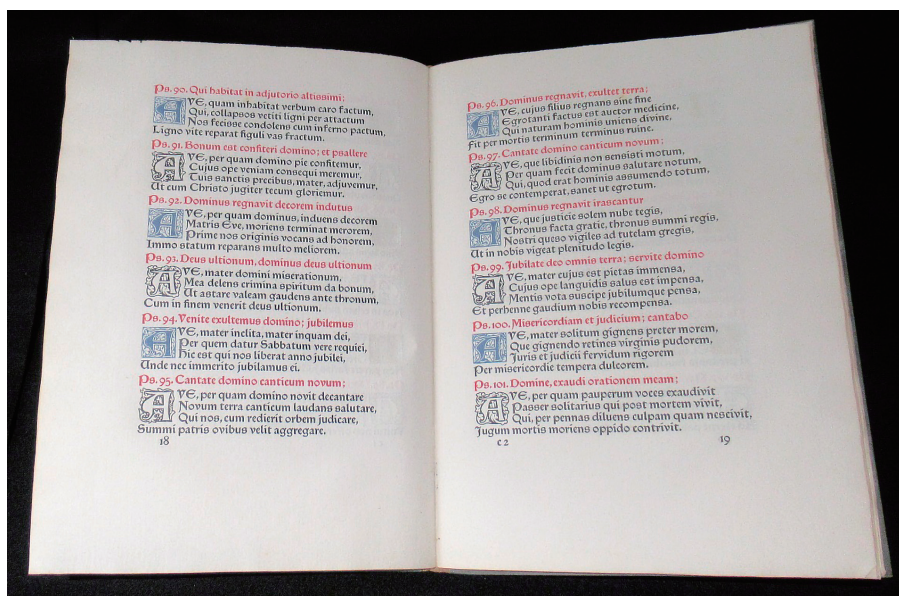 Ps. 90. Qui habitat in adjutorio altissimi:
AVE, quam inhabitat verbum caro factum,
Qui, collapsos vetiti ligni per attactum
Nos fecisse condolens cum inferno pactum,
Ligno vite reparat figuli vas fractum.
Ps. 91. Bonum est confiteri domino: et psallere
AVE, per quam domino pie confitemur,
Cujus ope veniam consequi meremur,
Cuis sanctis precibus, mater, adjuvemur,
Ut cum Christo jugiter tecum gloriemur.
Ps. 92. Dominus regnavit decorem indutus
AVE, per quam dominus, induens decorem
Matris Eve, moriens terminat merorem,
Prime nos originis vocans ad honorem,
Immo statum reparans multo meliorem.
Ps. 93. Deus ultionum, dominus deus ultionum
AVE, mater domini miserationum,
Mea delens crimina spiritum da bonum,
Ut astare valeam gaudens ante thronum,
Cum in finem venerit deus ultionum.
Ps. 94. Venite exultemus domino: jubilemus
AVE, mater inclita, mater inquam dei,
Per quem datur Sabbatum vere requiei,
Hic est qui nos liberat anno jubilei,
Unde nec immerito jubilamus ei.
Ps. 95. Cantate domino canticum novum:
AVE, per quam domino novit decantare
Novum terra canticum laudans salutare,
Qui nos, cum redierit orbem judicare,
Summi patris ovibus velit aggregare.
18
Ps. 96. Dominus regnavit, exultet terra:
AVE, cujus filius regnans sine fine
Egrotanti factus est auctor medicine,
Qui naturam hominis uniens divine,
Fit per mortis terminum terminus ruine.
Ps. 97. Cantate domino canticum novum:
AVE, que libidinis non sensisti motum,
Per quam fecit dominus salutare notum,
Qui, quod erat hominis assumendo totum,
Egro se contemperat, sanct ut egrotum.
Ps. 98. Dominus regnavit irascantur
AVE, que justicie solem nube tegis,
Thronus facta gratie, thronus summi regis,
Nostri queso vigiles ad tutelam gregis,
Ut in nobis vigeat plenitudo legis.
Ps. 99. Jubilate deo omnis terra: servite domino
AVE, mater cujus est pietas immensa,
Cujus ope languidis salus est impensa,
Mentis vota suscipe jubilumque pensa,
Et perhenne gaudium nobis recompensa.
Ps. 100. Misericordiam et judicium: cantabo
AVE, mater solitum gignens preter morem,
Que gignendo retines virginis pudorem,
Juris et judicii fervidum rigorem
Per misericordie tempera dulcorem.
Ps. 101. Domine, exaudi orationem meam:
AVE, per quam pauperum voces exaudivit
Passer solitarius qui post mortem vivit,
Qui, per pennas diluens culpam quam nescivit,
Jugum mortis moriens oppido contrivit.
c2 19